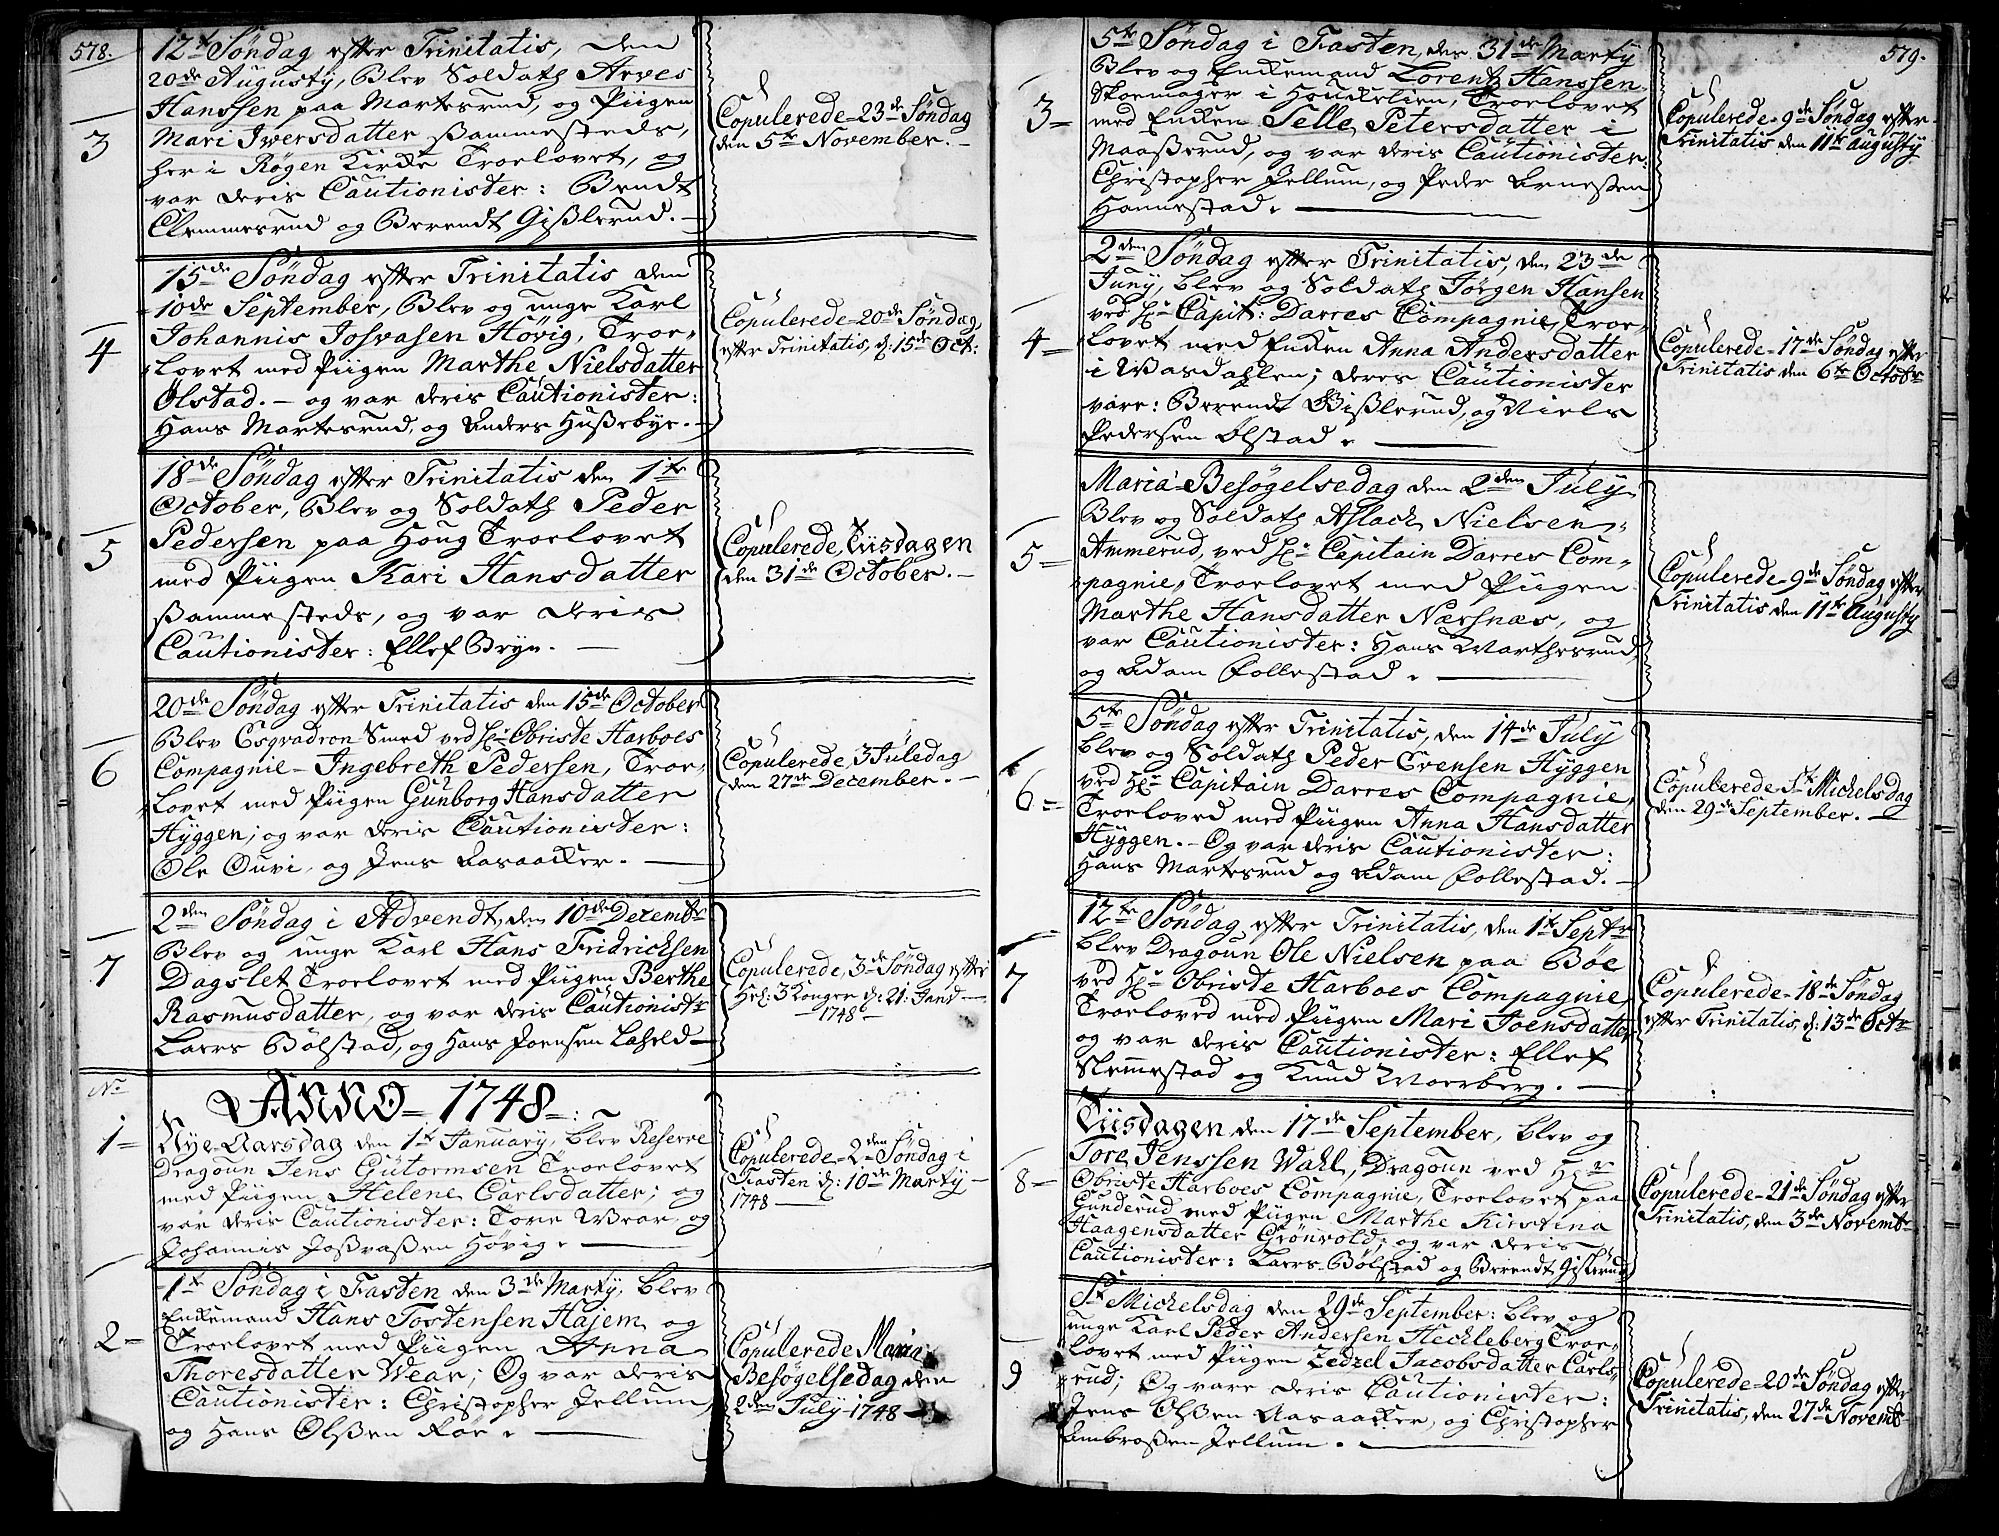 578.
12te Søndag efter Trinitatis, den
20de Augusty, Blev Soldath Arves
Hanssen paa Martesrud, og Piigen
Mari Iversdatter sammesteds,
her i Røgen Kirke Troelovet, og
var deris Cautionister: Bendt
Clemmesrud og Berendt Gißlerud. —
3
Copulerede 23de Søndag
den 5te November. —
15de Søndag efter Trinitatis den
10de September, Blev og unge Karl
Johannis Josvasen Høvig, Troe-
lovet med Piigen Marthe Nielsdatter
Ølstad. — og var deris Cautionister:
Hans Martesrud, og Anders Hußebye. —
4
Copulerede 20de Søndag
efter Trinitatis, d: 15de Oct:
18de Søndag efter Trinitatis den 1te
October, Blev og Soldath Peder
Pedersen paa Houg Troelovet
med Piigen Kari Hansdatter
sammesteds, og var deris
Cautionister: Ellef Brye. —
5
Copulerede, Tiisdagen
den 31de October. —
20de Søndag efter Trinitatis den 15de October
Blev Esqvadron Smed ved Hr. Obriste Harboes
Compagnie — Ingebreth Pedersen, Troe-
lovet med Piigen Gunborg Hansdatter
Hyggen; og var deris Cautionister:
Ole Ouvi, og Jens Aasaacker. —
6
Copulerede, 3 Juledag
den 27de December. —
2den Søndag i Advendt, den 10de Decembr
Blev og unge Karl Hans Fridricksen
Dagslet Troelovet med Piigen Berthe
Rasmusdatter, og var deris Cautionistr
Laers Bølstad, og Hans Joensen Laheld —
7
Copulerede, 3de Søndag efter
Hel: 3 Konger d: 21: Janv —
— 1748 —
No
ANNO — 1748 — :
Nye-Aarsdag den 1te January, blev Reserve
Dragoun Jens Gutormsen Troelovet
med Piigen Helene Carlsdatter; og
var deris Cautionister: Tore Wear, og
Johannis Joßvaßen Høvig. —
1 —
Copulerede — 2den Søndag i
Fasten d: 10de Marty —
1748 —
1te Søndag i Fasten den 3de Marty, blev
Enkemand Hans Tostensen Hajem, og
Troelovet med Piigen Anna
Thoresdatter Wear; Og var deris
Cautionister: Christopher Jellum,
og Hans Olßen Røe. —
2 —
Copulerede Maria
Besøgelsedag den
2den July 1748 —
579.
5te Søndag i Fasten, den 31de Marty
Blev og Enkemand Lorentz Hanssen
Skoemager i Houkelien, Troelovet
med Enken Selle Petersdatter i
Maaßerud, og var deris Cautionister:
Christopher Jellum, og Peder Arneßen
Hannestad. —
3 —
Copulerede 9de Søndag efter
Trinitatis den 11te Augusty
2den Søndag efter Trinitatis, den 23de
Juny, blev og Soldath Jørgen Hansen
ved Hr. Capit: Darres Compagnie, Troe-
lovet med Enken Anna Andersdatter
i Wasdahlen; deres Cautionister
vare: Berendt Gißlerud, og Niels
Pedersen Ølstad. —
4 —
Copulerede 17de Søndag efter
Trinitatis den 6te Octobr
Mariæ Besøgelsedag den 2den July
Blev og Soldath Aslach Nielsen
Ammerud, ved Hr. Capitain Darres Com-
pagnie, Troelovet med Piigen
Marthe Hansdatter Nærsnæs, og
var Cautionister: Hans Marthesrud,
og Adam Follestad. —
5 —
Copulerede 9de Søndag efter
Trinitatis den 11te Augusty
5te Søndag efter Trinitatis, den 14de July
blev og Soldath Peder Evensen Hyggen
ved Hr. Capitain Darres Compagnie,
Troeloved med Piigen Anna Hansdatter
Hyggen. — Og var deris Cautionister:
Hans Martesrud og Adam Follestad. —
6 —
Copulerede St Michelsdag
den 29de September. —
12te Søndag efter Trinitatis, den 1te Septr
blev Dragoun Ole Nielsen paa Bøe
ved Hr. Obriste Harboes Compagnie
Troeloved med Piigen Mari Joensdatter
og var deris Cautionister: Ellef
Slemmestad og Knud Morberg. —
7
Copulerede 18de Søndag
efter Trinitatis, d: 13de Octr
Tiisdagen den 17de September, blev og
Tore Jenssen Wahl, Dragoun ved Hr
Obriste Harboes Compagnie, Troelovet paa
Gunderud med Piigen Marthe Kirstina
Haagensdatter Grønvold; og var deris
Cautionister: Laers Bølstad og Berendt Gislerud
8 —
Copulerede 21de Søndag efter
Trinitatis, den 3de Novembr
St Michelsdag den 29de September: blev og
unge Karl Peder Andersen Heckleberg Troe-
lovet med Piigen Zedzel Jacobsdatter Carls-
rud; Og vare deris Cautionister:
Jens Olßen Aasaacker, og Christopher
Ambroßen Jellum. —
9
Copulerede 20de Søndag efter
Trinitatis, den 27de Novemb